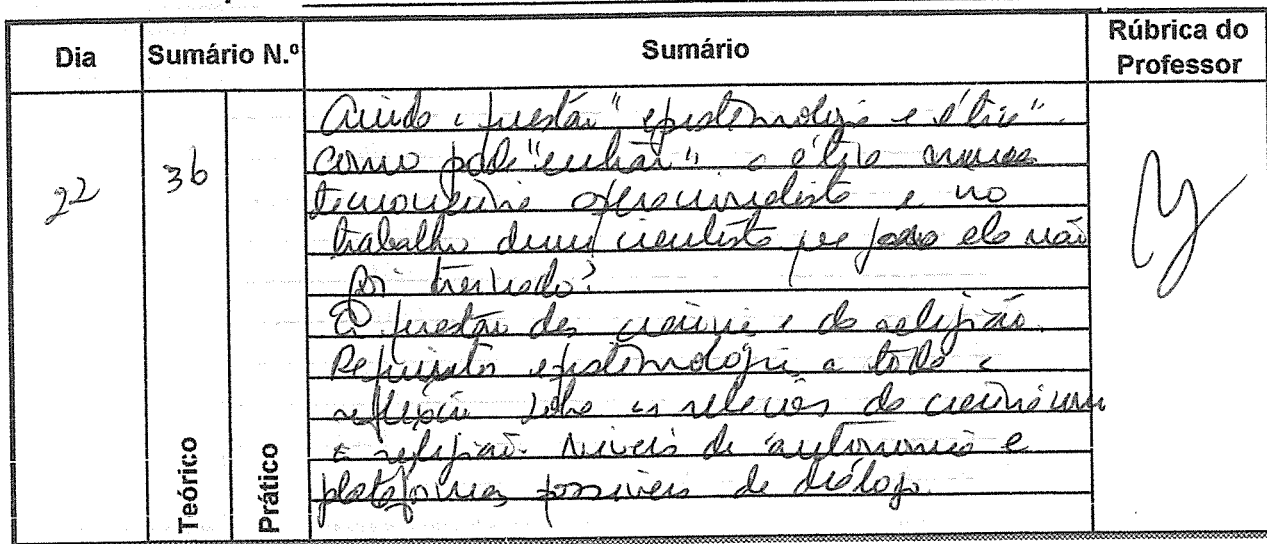 Dia
Sumário N.º
Sumário
Rúbrica do
Professor
22
36
Teórico
Prático
Ainda a questão "epistemologia e ética".
Como pode "entrar" a ética numa
tecnociência operacionalista e no
trabalho dum cientista que para ela não
foi treinado?
A questão da ciência e da religião.
Requisitos epistemológicos a toda a
reflexão sobre as relações da ciência com
a religião. Níveis de autonomia e
plataformas possíveis de diálogo.